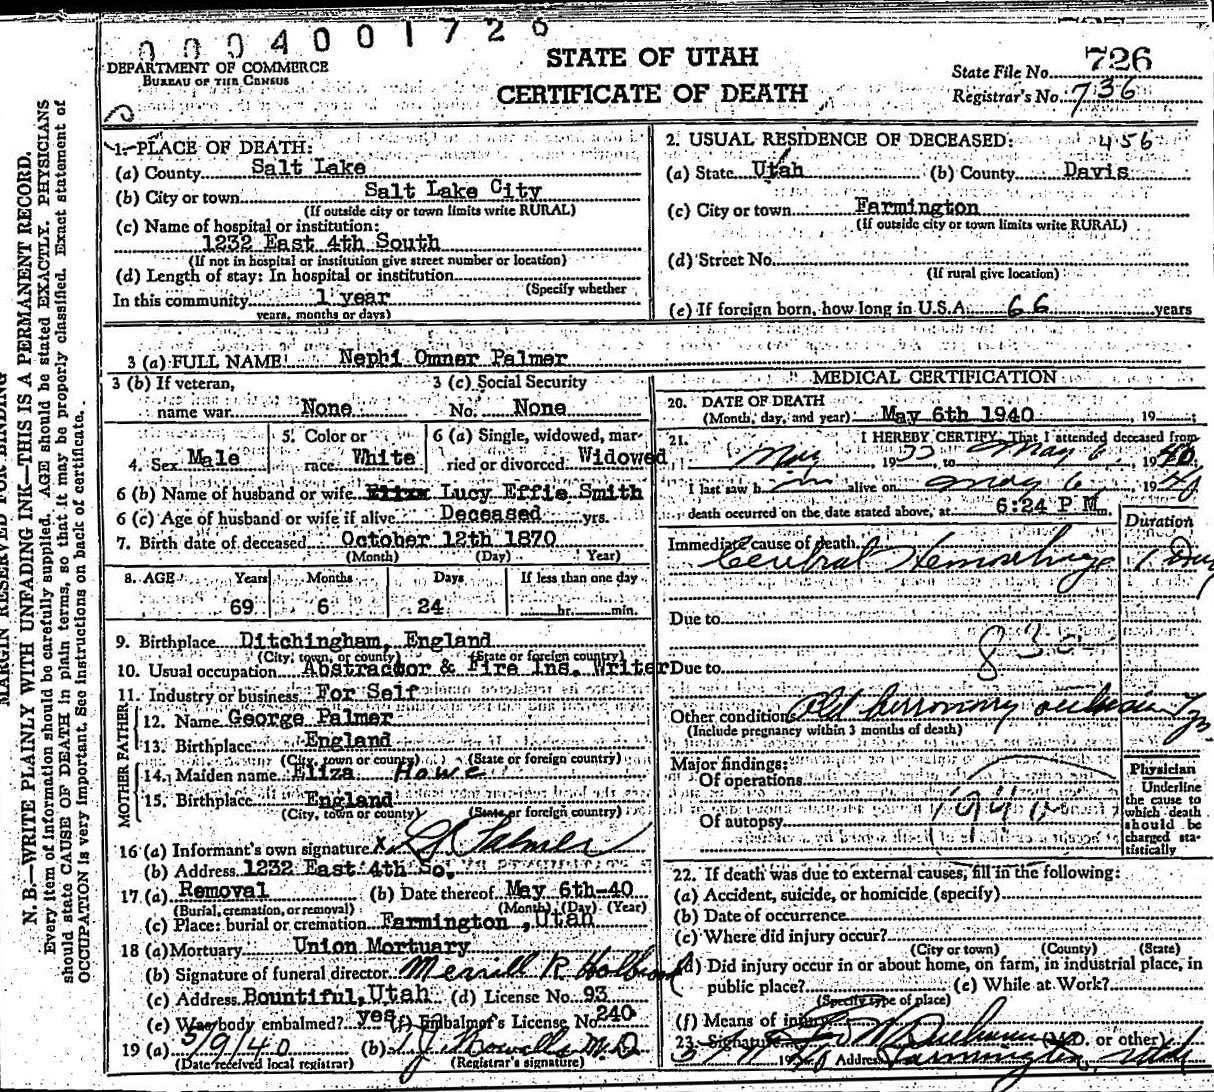 0004001726
DEPARTMENT OF COMMERCE
BUREAU OF THE CENSUS
STATE OF UTAH
CERTIFICATE OF DEATH
State File No. 726
Registrar's No. 736
MARGIN RESERVED FOR BINDING
N. B.—WRITE PLAINLY WITH UNFADING INK—THIS IS A PERMANENT RECORD.
Every item of information should be carefully supplied. AGE should be stated EXACTLY. PHYSICIANS
should state CAUSE OF DEATH in plain terms, so that it may be properly classified. Exact statement of
OCCUPATION is very important. See instructions on back of certificate.
1. PLACE OF DEATH:
(a) County Salt Lake
(b) City or town Salt Lake City
(If outside city or town limits write RURAL)
(c) Name of hospital or institution:
1232 East 4th South
(If not in hospital or institution give street number or location)
(d) Length of stay: In hospital or institution
(Specify whether
In this community 1 year
years, months or days)
2. USUAL RESIDENCE OF DECEASED: 456
(a) State Utah (b) County Davis
(c) City or town Farmington
(If outside city or town limits write RURAL)
(d) Street No.
(If rural give location)
(e) If foreign born, how long in U.S.A. 66 years
3 (a) FULL NAME Nephi Omner Palmer
3 (b) If veteran, 3 (c) Social Security
name war None No. None
4. Sex Male 5. Color or race White 6 (a) Single, widowed, married or divorced Widowed
6 (b) Name of husband or wife Lucy Effie Smith
6 (c) Age of husband or wife if alive Deceased yrs.
7. Birth date of deceased October 12th 1870
(Month) (Day) (Year)
8. AGE Years Months Days If less than one day
69 6 24 hr. min.
9. Birthplace Ditchingham, England
(City, town, or county) (State or foreign country)
10. Usual occupation Abstractor & Fire Ins. Writer
11. Industry or business For Self
FATHER
12. Name George Palmer
13. Birthplace England
(City, town or county) (State or foreign country)
MOTHER
14. Maiden name Eliza Howe
15. Birthplace England
(City, town or county) (State or foreign country)
16 (a) Informant's own signature X Palmer
(b) Address 1232 East 4th So.
17 (a) Removal (b) Date thereof May 6th-40
(Burial, cremation, or removal) (Month) (Day) (Year)
(c) Place: burial or cremation Farmington, Utah
18 (a) Mortuary Union Mortuary
(b) Signature of funeral director Merrill R Holbrook
(c) Address Bountiful, Utah (d) License No. 93
(e) Was body embalmed? yes (f) Embalmer's License No. 240
19 (a) 5/9/40 (b) M.D.
(Date received local registrar) (Registrar's signature)
MEDICAL CERTIFICATION
20. DATE OF DEATH
(Month, day, and year) May 6th 1940, 19 ;
21. I HEREBY CERTIFY, That I attended deceased from
May 1933, to May 6, 1940
I last saw him alive on May 6 1940
death occurred on the date stated above, at 6:24 P M m.
Duration
Immediate cause of death
Cerebral Hemorrhage 1 Day
Due to
830
Due to
Other conditions Old
(Include pregnancy within 3 months of death)
Major findings:
Of operations
Of autopsy
Physician
Underline
the cause to
which death
should be
charged sta-
tistically
22. If death was due to external causes, fill in the following:
(a) Accident, suicide, or homicide (specify)
(b) Date of occurrence
(c) Where did injury occur?
(City or town) (County) (State)
(d) Did injury occur in or about home, on farm, in industrial place, in
public place? (e) While at Work?
(Specify type of place)
(f) Means of injury
23. Signature (M.D. or other)
19 Address Farmington Utah